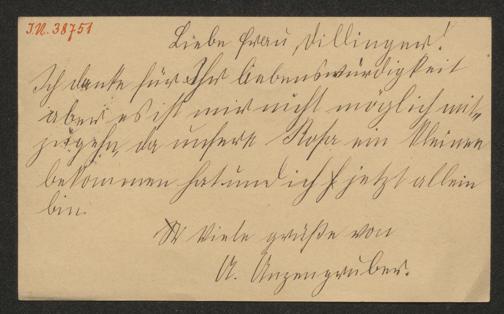 I.N. 38751
Liebe Frau Dillinger!
Ich danke für Ihr Liebenswürdigkeit
aber es ist mir nicht möglich mit-
zugehn, da unsere Rosa ein Kleinen
bekommen hat und ich jetzt allein
bin.
Viele grüße von
A. Anzengruber.